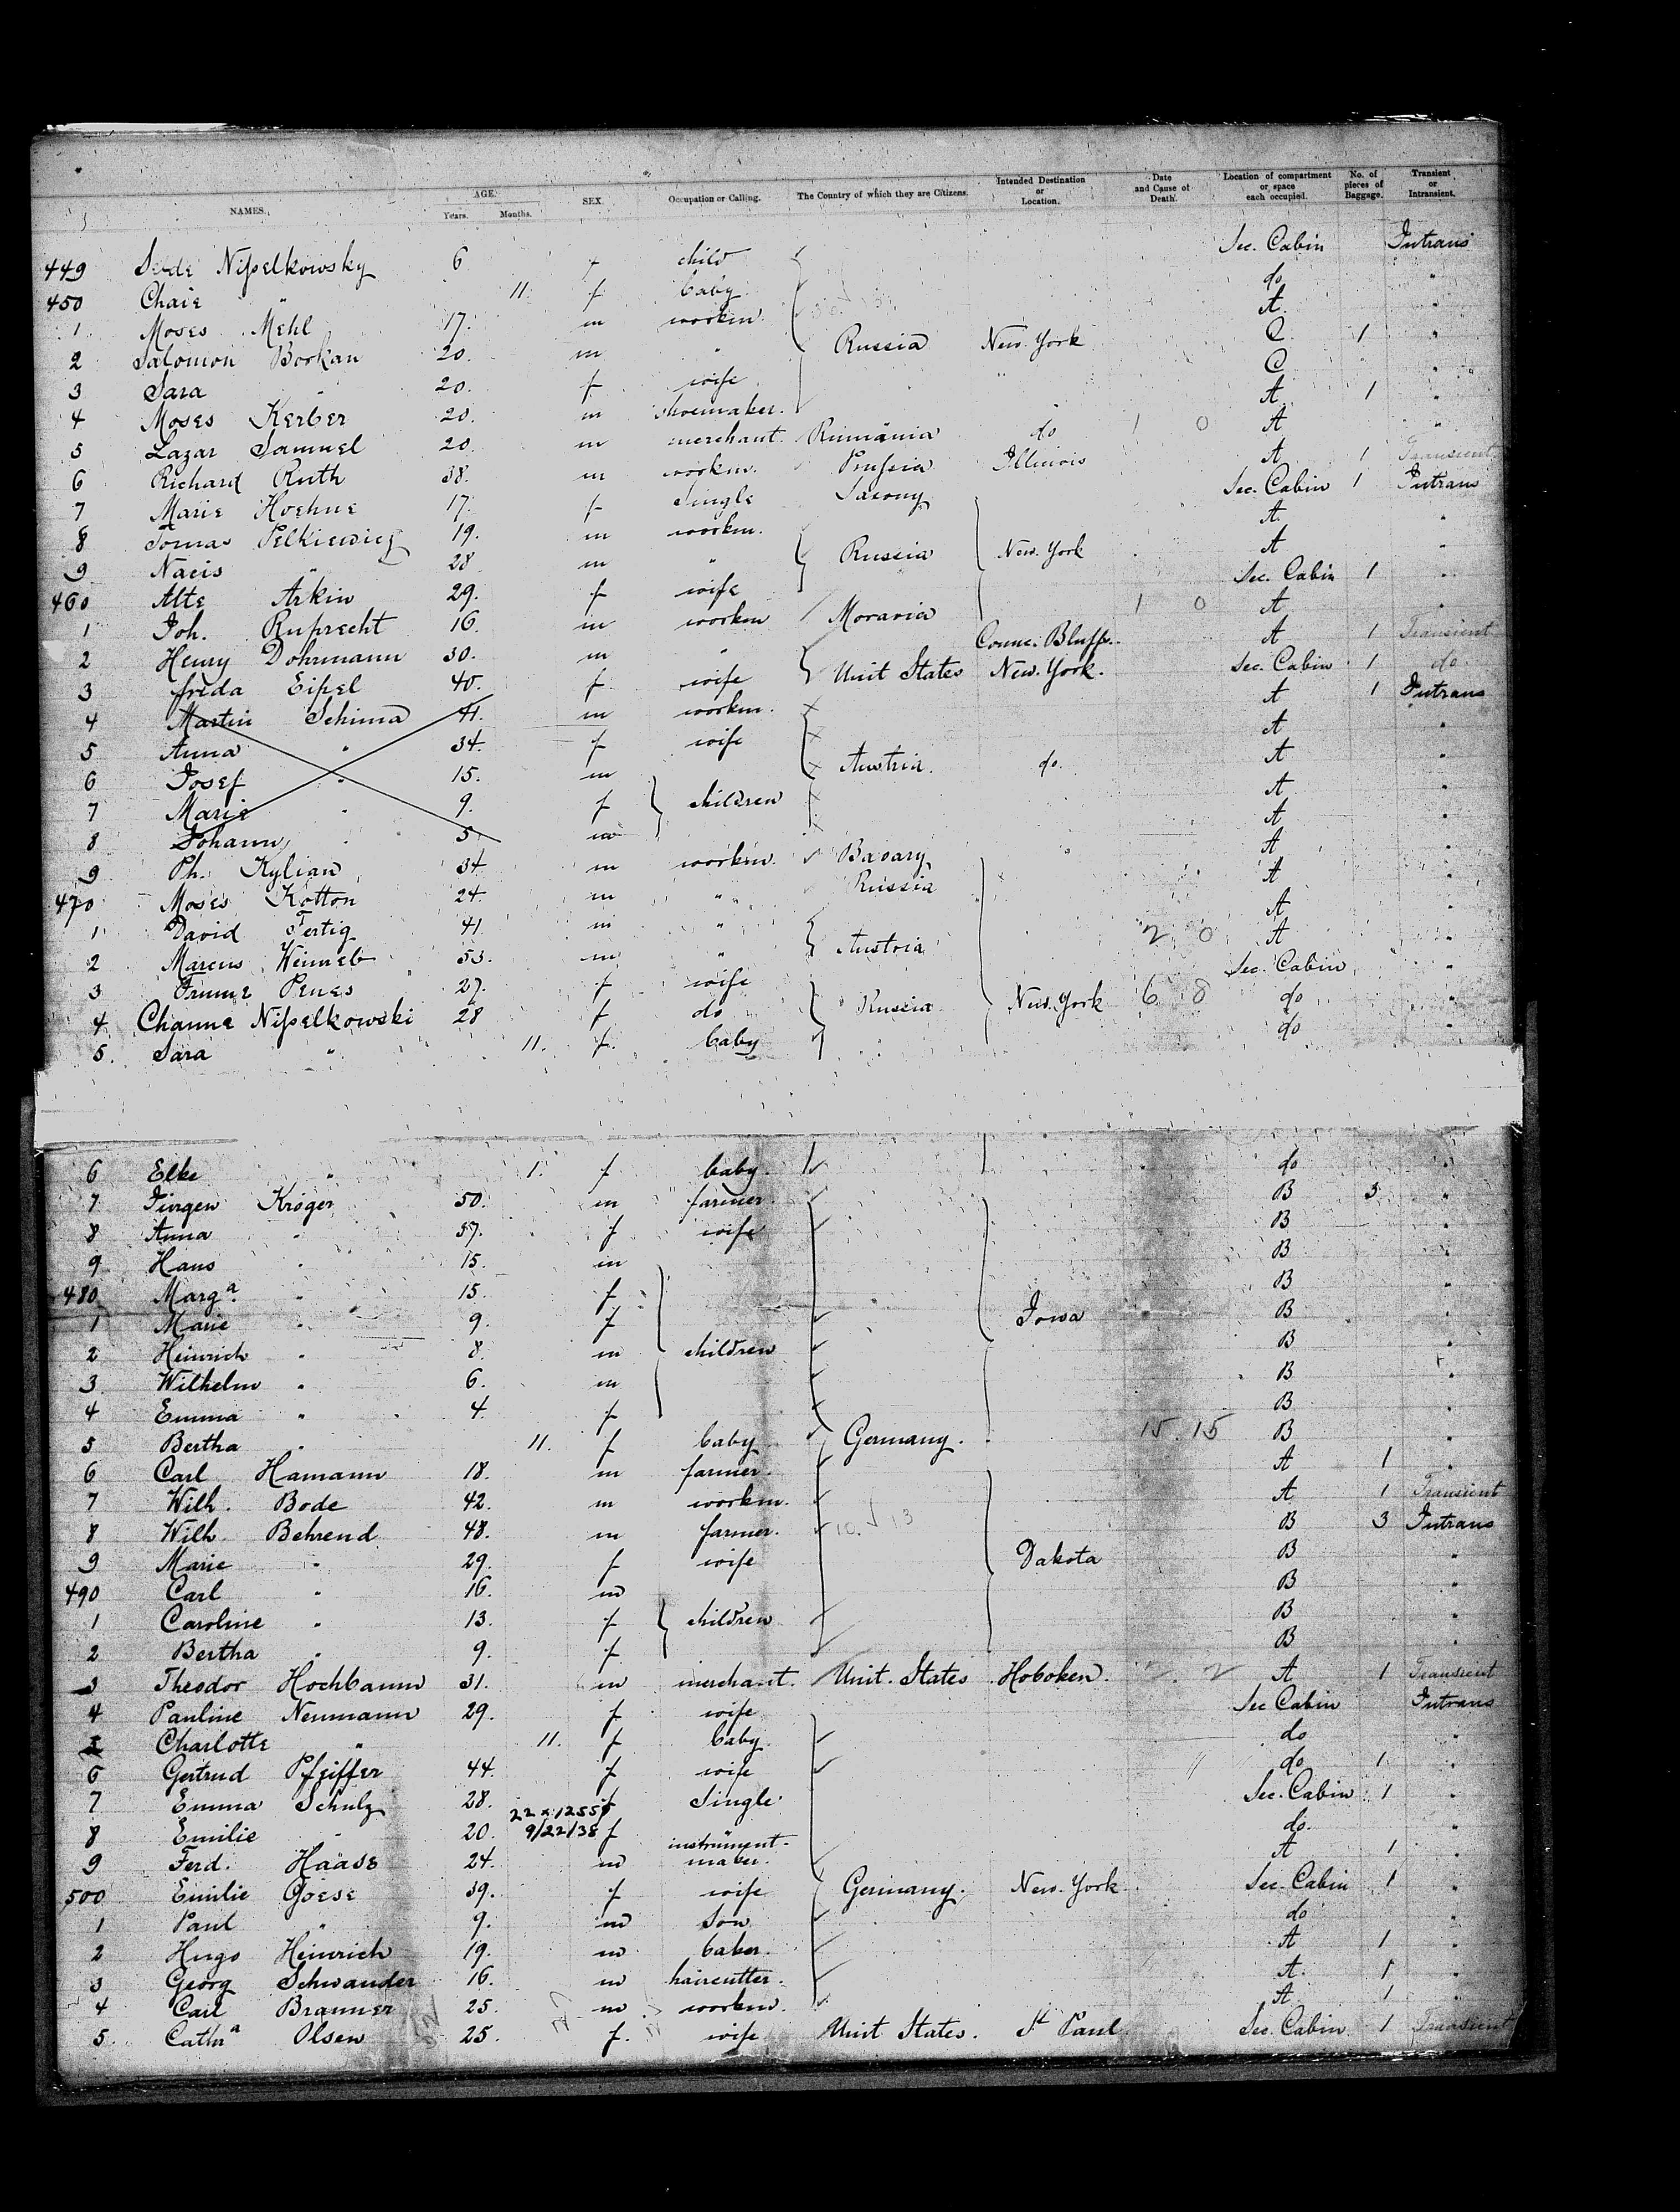 NAMES. AGE. Years. Months. SEX. Occupation or Calling. The Country of which they are Citizens. Intended Destination or Location. Date and Cause of Death. Location of compartment or space each occupied. No. of pieces of Baggage. Transient or Intransient.
449 Nißelkowsky 6 f child Sec. Cabin Intrans
450 Chaie " 11. f baby do "
1 Moses Mehl 17. m workm. A. "
2 Salomon Borkan 20. m " Russia New York C. 1 "
3 Sara " 20. f wife C "
4 Moses Kerber 20. m shoemaker. A 1 "
5 Lazar Samuel 20. m merchant. Rumänia do 1 0 A "
6 Richard Ruth 38. m workm. Prußia Illinois A 1 Transient
7 Marie Hoehne 17. f Single Saxony Sec. Cabin 1 Intrans
8 Tomas Pelkiewicz 19. m workm. A "
9 Nacis " 28 m " Russia New York A "
460 Alte Arkin 29. f wife Sec. Cabin 1 "
1 Joh. Ruprecht 16. m workm Moravia 1 0 A "
2 Henry Dohrmann 30. m " Counc. Bluffs. A 1 Transient
3 frida Eißel 40. f wife Unit States New York. Sec. Cabin 1 do
4 Martin Schima 41. m workm. A 1 Intrans
5 Anna " 34. f wife A "
6 Josef " 15. m Austria. do. A "
7 Marie " 9. f children A "
8 Johann " 5 m A "
9 Ph. Kylian 34. m workm. Bavary A "
470 Moses Kotton 24. m " Russia A "
1 David Fertig 41. m " A "
2 Marcus Weinreb 53. m " Austria 2 0 A "
3 Penes 27. f wife Sec. Cabin "
4 Channe Nißelkowski 28 f do Russia New York 6 8 do "
5. Sara " 11. f. baby do "
6 Elke " 1. f baby. do "
7 Jürgen Kröger 50. m farmer. B 3 "
8 Anna " 57. f wife B "
9 Hans " 15. m B "
480 Marga. " 15. f B "
1 Marie " 9. f Iowa B "
2 Heinrich " 8. m children B "
3 Wilhelm " 6. m B "
4 Emma " 4. f B "
5 Bertha " 11. f baby Germany. 15. 15 B "
6 Carl Hamann 18. m farmer. A 1 "
7 Wilh. Bode 42. m workm. A 1 Transient
8 Wilh Behrend 48. m farmer. 10. 13 B 3 Intrans
9 Marie " 29. f wife Dakota B "
490 Carl " 16. m B "
1 Caroline " 13. f children B "
2 Bertha " 9. f B "
3 Theodor Hochbaum 31. m merchant. Unit. States Hoboken. 2 2 A 1 Transient
4 Pauline Neumann 29. f wife Sec Cabin Intrans
5 Charlotte " 11. f baby do "
6 Gertrud Pfeiffer 44. f wife do 1 "
7 Emma Schulz 28. f Single Sec. Cabin 1 "
22 x 12555
8 Emilie " 20. 9/22/38 f do. "
9 Ferd. Haase 24. m instrument-maker. A 1 "
500 Emilie Goese 39. f wife Germany. New York Sec. Cabin 1 "
1 Paul " 9. m Son do "
2 Hugo Heinrich 19. m baker. A 1 "
3 Georg Schwander 16. m haircutter. A. 1 "
4 Carl Branner 25. m workm. A 1 "
5. Catha Olsen 25. f. wife Unit States. St Paul Sec. Cabin 1 Transient